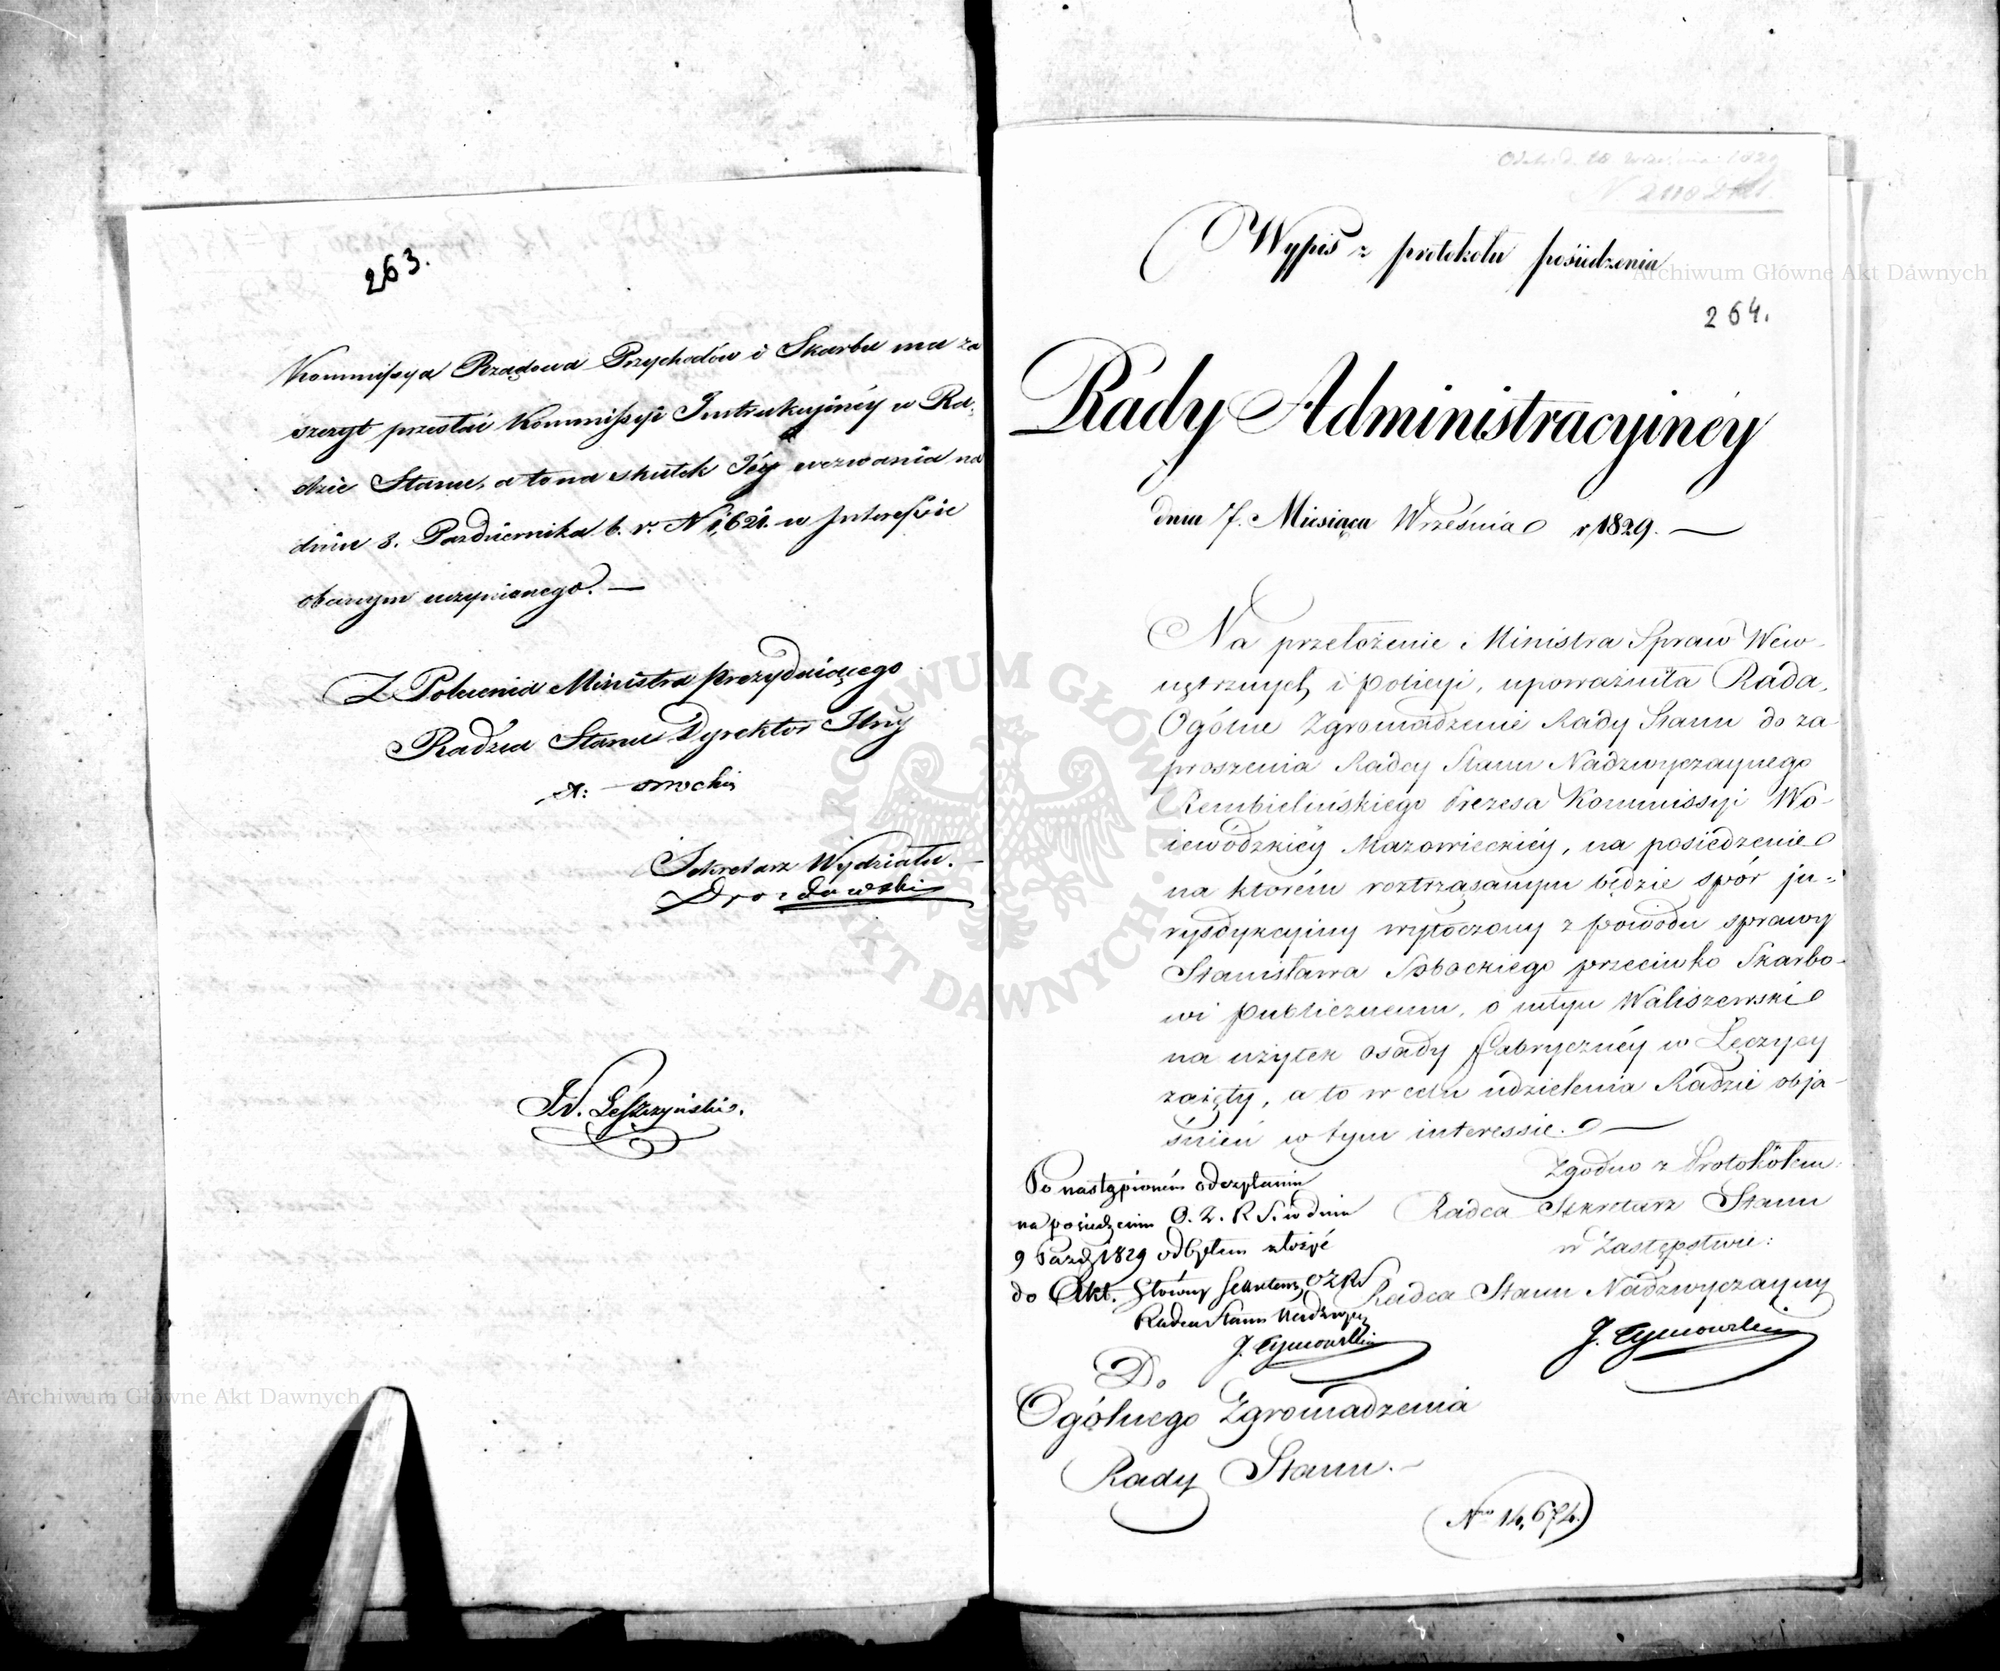 263.
Kommissya Rządowa Przychodów i Skarbu ma za
szczyt przesłać Kommissyi Instrukcyinéy w Ra-
dzie Stanu, a to na skutek Jéy wezwania na
dniu 3. Października b. r. N 1,621. w Interessie
obocznym uczynionego. —
Z Polecenia Ministra Prezyduiącego
Radzca Stanu Dyrektor Jlny
Sekretarz Wydziału.
Drozdowski
W. Leszczyński.
Odebr. d. 10 Września 1829
Wypis z protokołu posiedzenia
264.
Rady Administracyinéy
dnia 7. Miesiąca Września r 1829. —
Na przełożenie Ministra Spraw Wew-
nętrznych i Policyi, upoważniła Rada,
Ogólne Zgromadzenie Rady Stanu do za
proszenia Radcy Stanu Nadzwyczaynego
Rembielińskiego Prezesa Kommissyi Wo-
iewódzkiéy Mazowieckiéy, na posiedzenie
na którém roztrząsanym będzie spór ju-
rysdykcyiny wytoczony z powodu sprawy
Stanisława Sobockiego przeciwko Skarbo-
wi publicznemu, o młyn Waliszewski
na użytek osady fabrycznéy w Łęczycy
zaięty, a to w celu udzielenia Radzie obja-
śnień w tym interessie. —
Zgodno z Protokółem:
Radca Sekretarz Stanu
w Zastępstwie:
Radca Stanu Nadzwyczayny
J. Tymowski
Po nastąpioném odczytaniu
na posiedzeniu O. Z. R S. w dniu
9 Paźdź 1829 odbytem złożyć
do Akt. Główny Sekretarz OZRS
Radca Stanu Nadzwycz
J. Tymowski
Do
Ogólnego Zgromadzenia
Rady Stanu. —
Nro 14,674.
Archiwum Główne Akt Dawnych
Archiwum Główne Akt Dawnych
ARCHIWUM GŁÓWNE AKT DAWNYCH